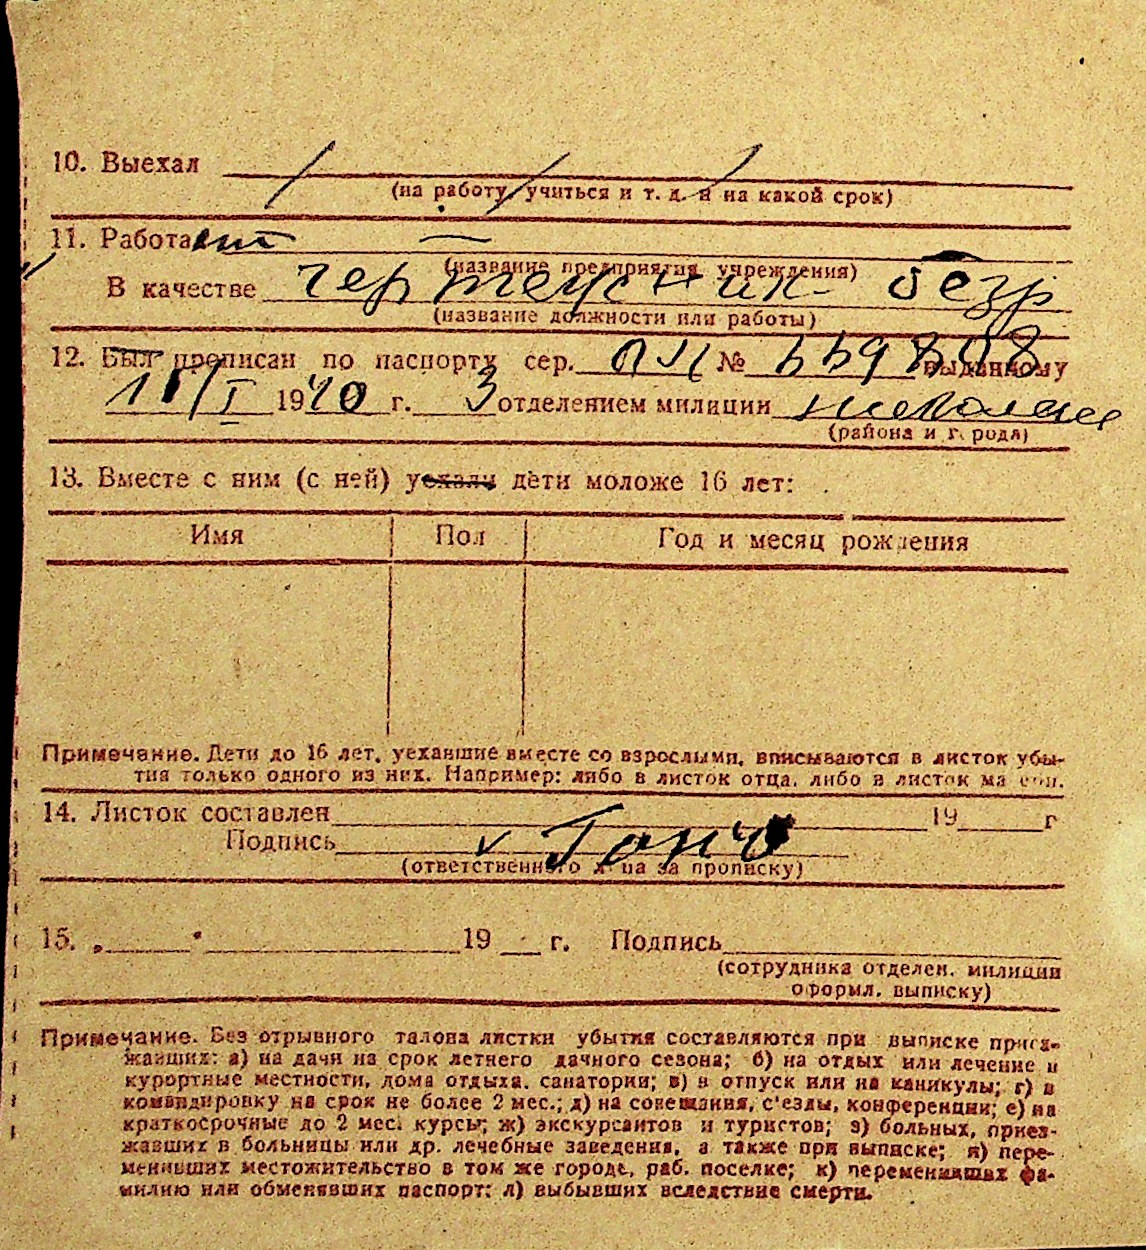 10. Выехал
(на работу, учиться и т. д. и на какой срок)
11. Работает —
(название предприятия, учреждения)
В качестве чертежник безр
(название должности или работы)
12. Был прописан по паспорту сер. № выданному
I 1940 г. 3 отделением милиции
(района и города)
13. Вместе с ним (с ней) уехали дети моложе 16 лет:
Имя Пол Год и месяц рождения
Примечание. Дети до 16 лет, уехавшие вместе со взрослыми, вписываются в листок убы-
тия только одного из них. Например: либо в листок отца, либо в листок матери.
14. Листок составлен 19 г
Подпись Гонч
(ответственного лица за прописку)
15. „ " 19 г. Подпись
(сотрудника отделен. милиции
оформл. выписку)
Примечание. Без отрывного талона листки убытия составляются при выписке приез-
жавших: а) на дачи на срок летнего дачного сезона; б) на отдых или лечение в
курортные местности, дома отдыха, санатории; в) в отпуск или на каникулы; г) в
командировку на срок не более 2 мес.; д) на совещания, с'езды, конференции; е) на
краткосрочные до 2 мес. курсы; ж) экскурсантов и туристов; з) больных, приез-
жавших в больницы или др. лечебные заведения, а также при выписке; и) пере-
менивших местожительство в том же городе, раб. поселке; к) переменивших фа-
милию или обменявших паспорт; л) выбывших вследствие смерти.